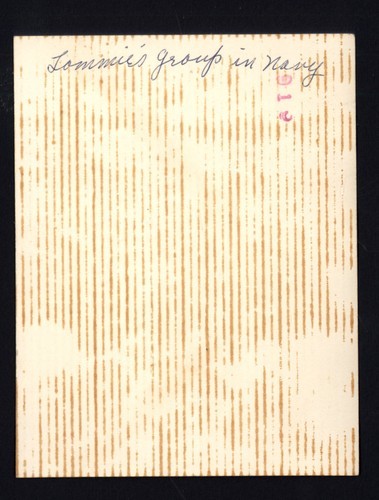 Tommie's group in Navy